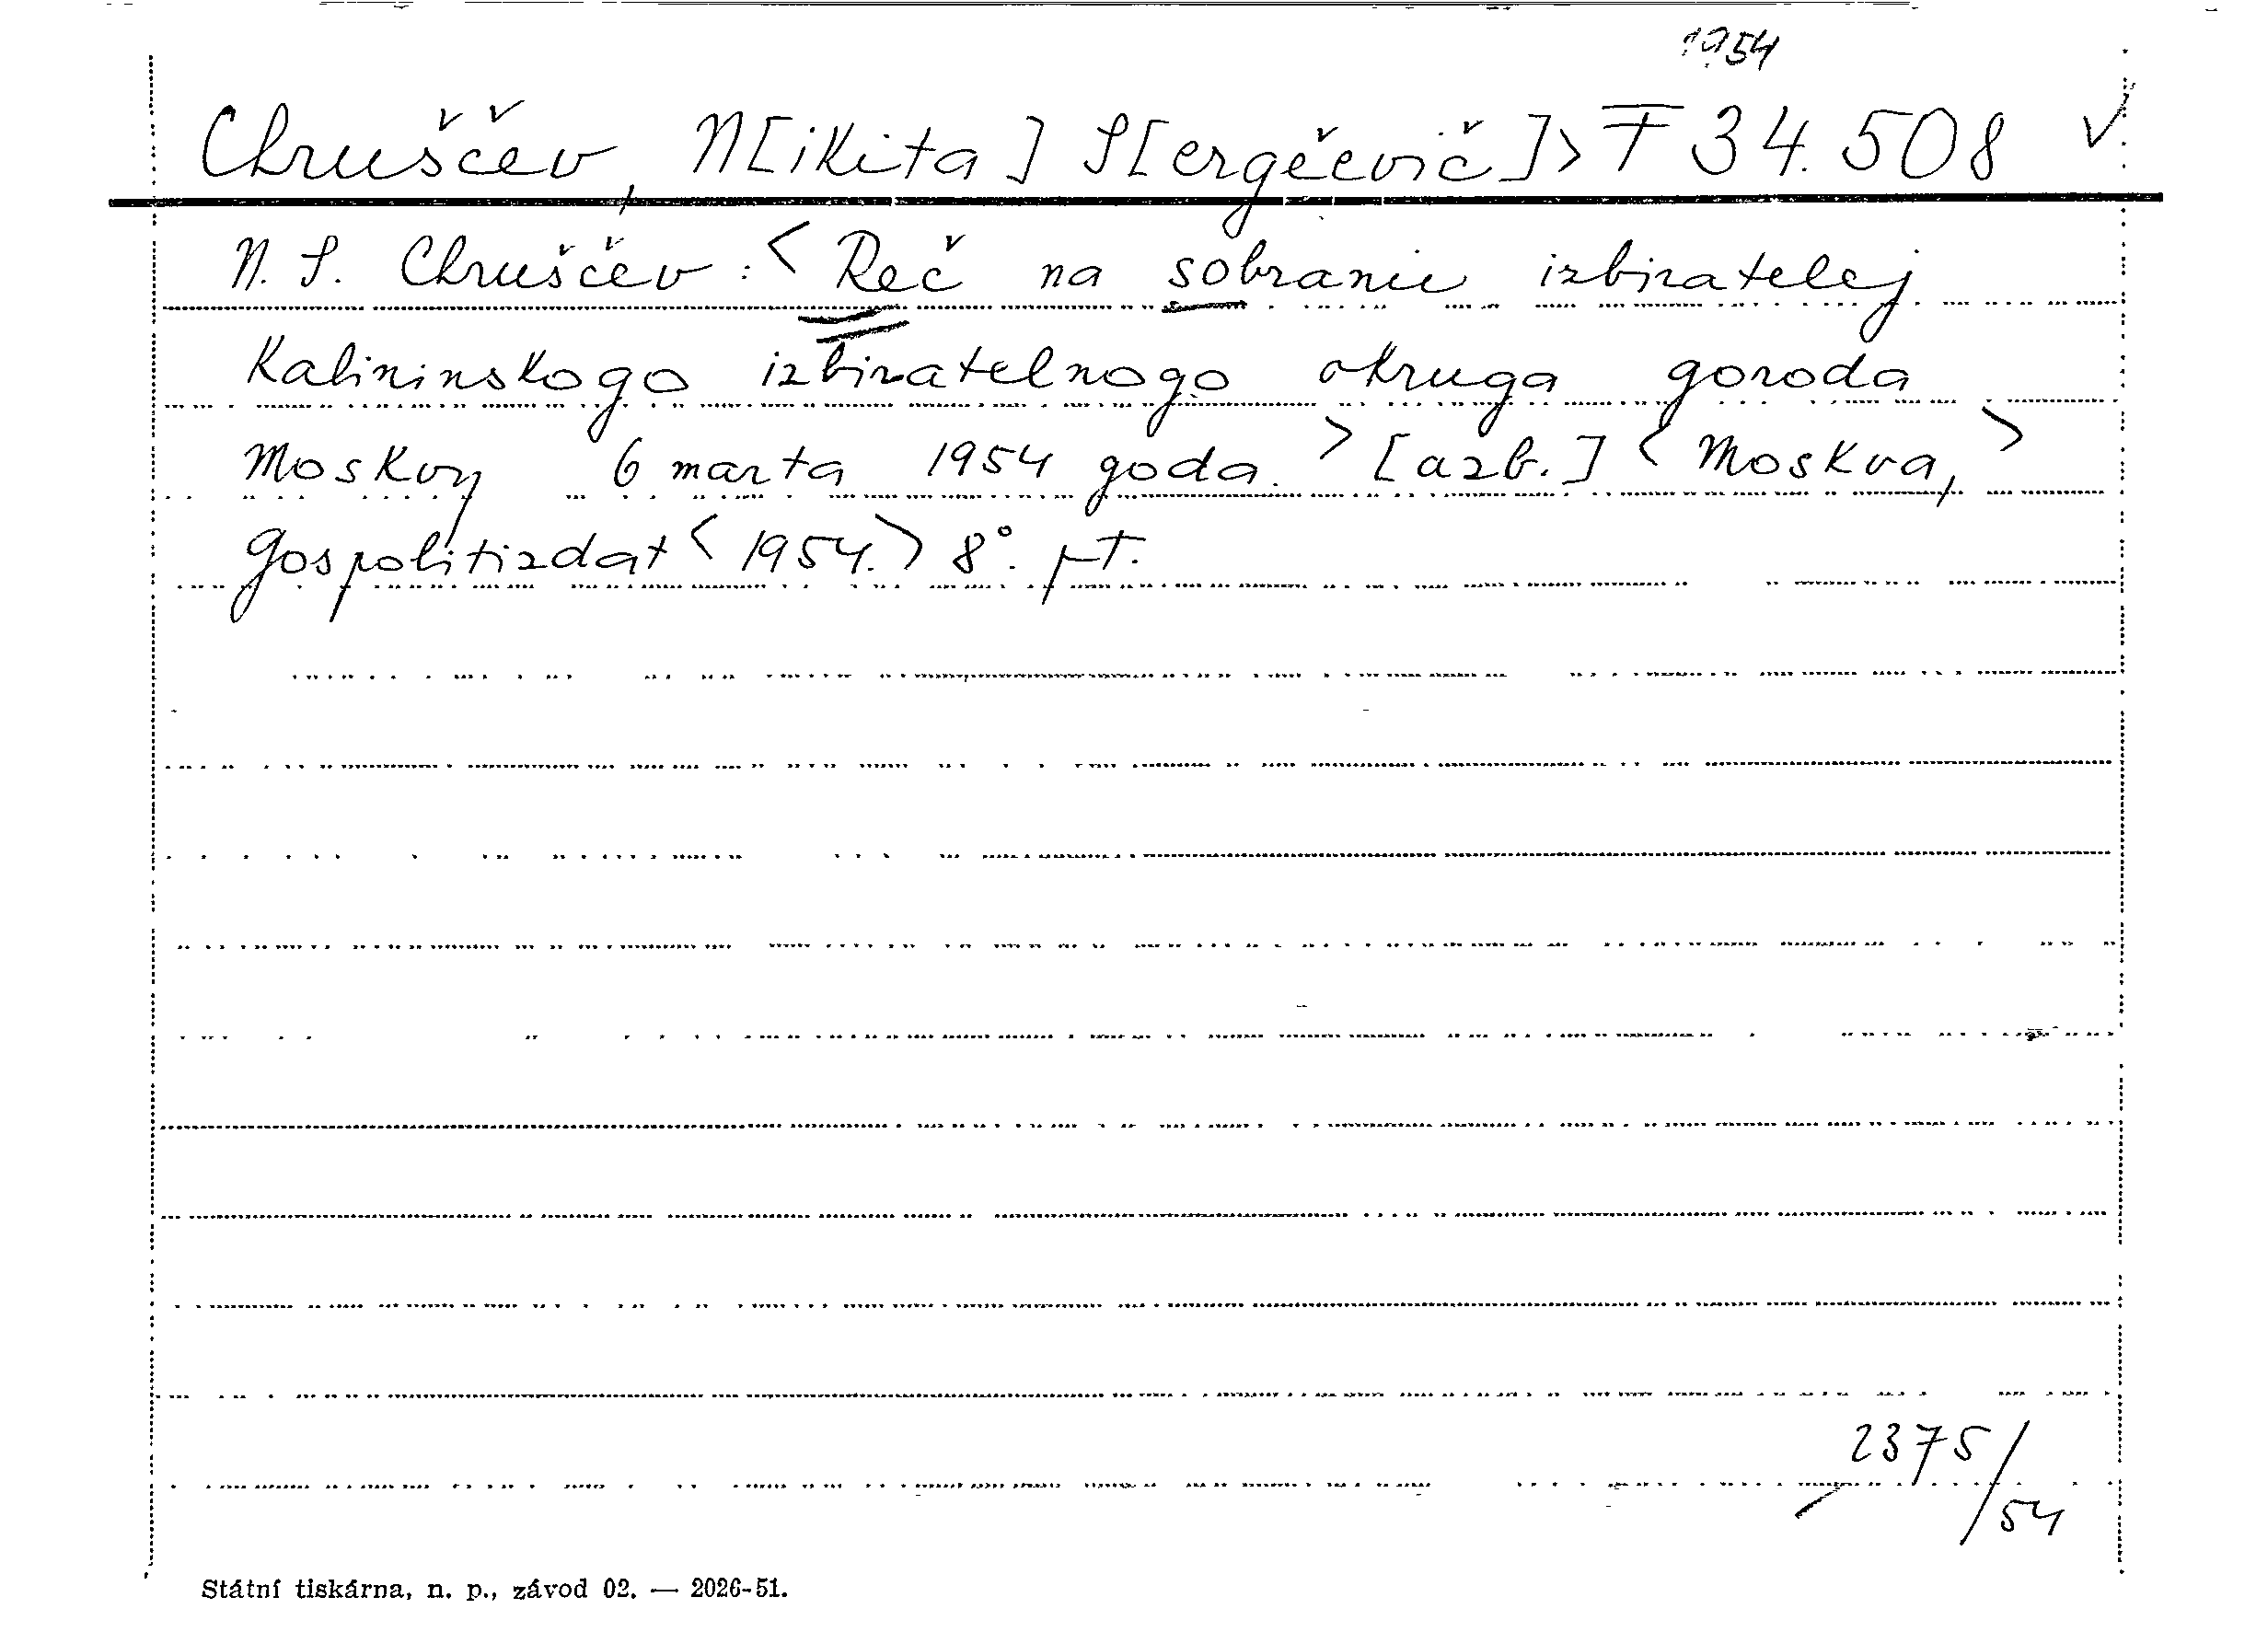 1954
Chruščev, N[ikita] S[ergěevič]> F 34.508 ✓
N. S. Chruščev: <Reč na sobranii izbiratelej
Kalininskogo izbiratelnogo okruga goroda
Moskvy 6 marta 1954 goda.> [azb.] <Moskva,>
Gospolitizdat <1954.> 8°. pT.
2375/54
Státní tiskárna, n. p., závod 02. — 2026-51.